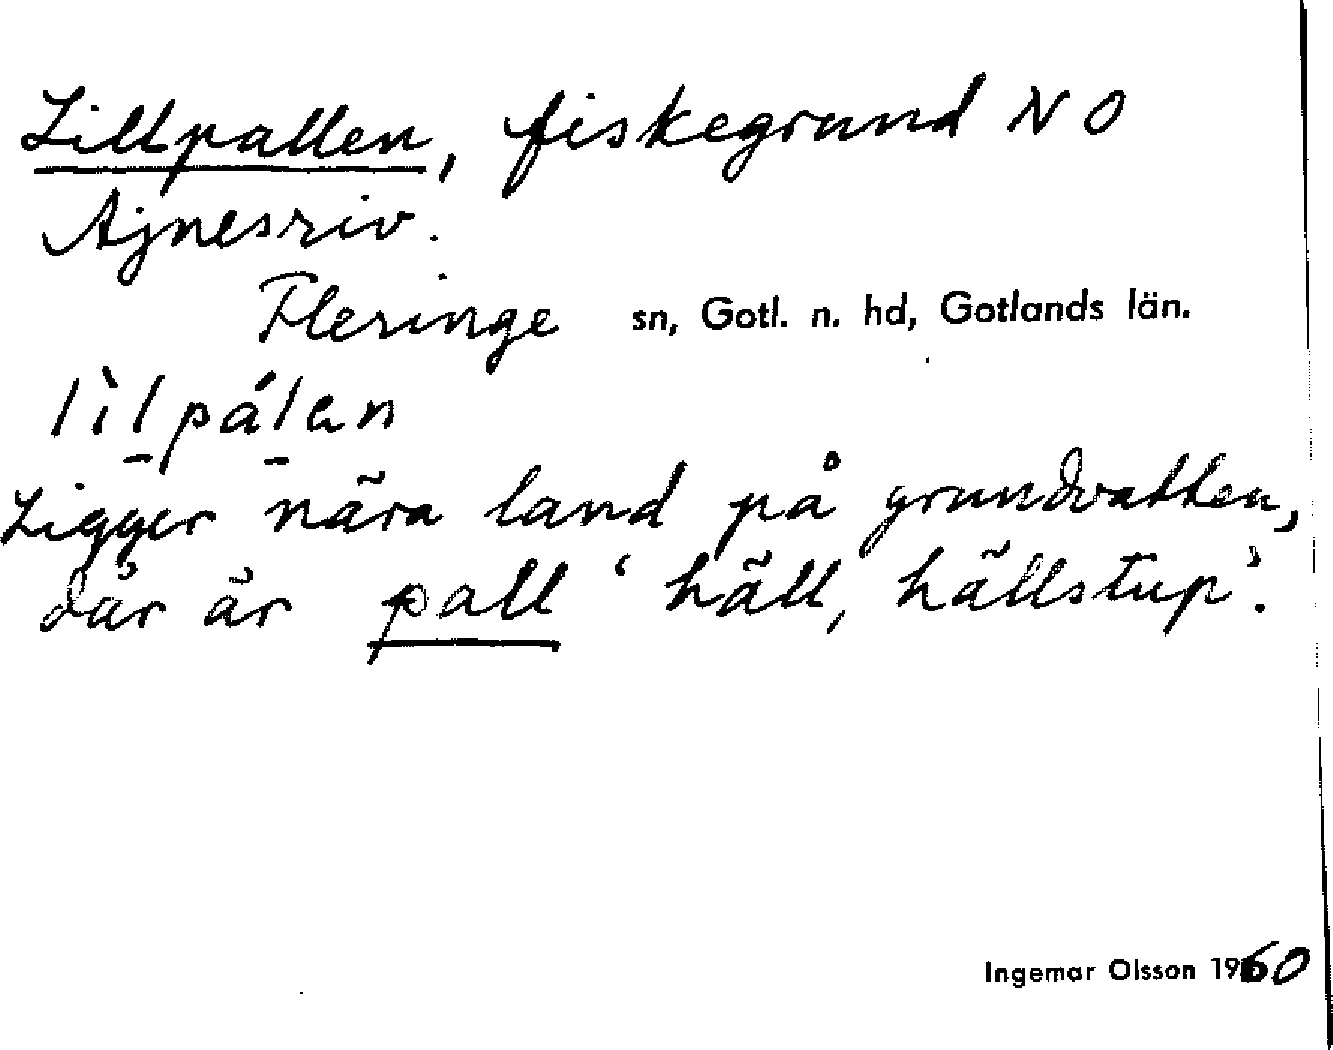 Lillpallen, fiskegrund NO
Ajnesriv.
Fleringe sn, Gotl. n. hd, Gotlands län.
lìl̠pál̠an
Ligger nära land på grundvatten,
där är pall ‘häll, hällstup’.
Ingemar Olsson 1960